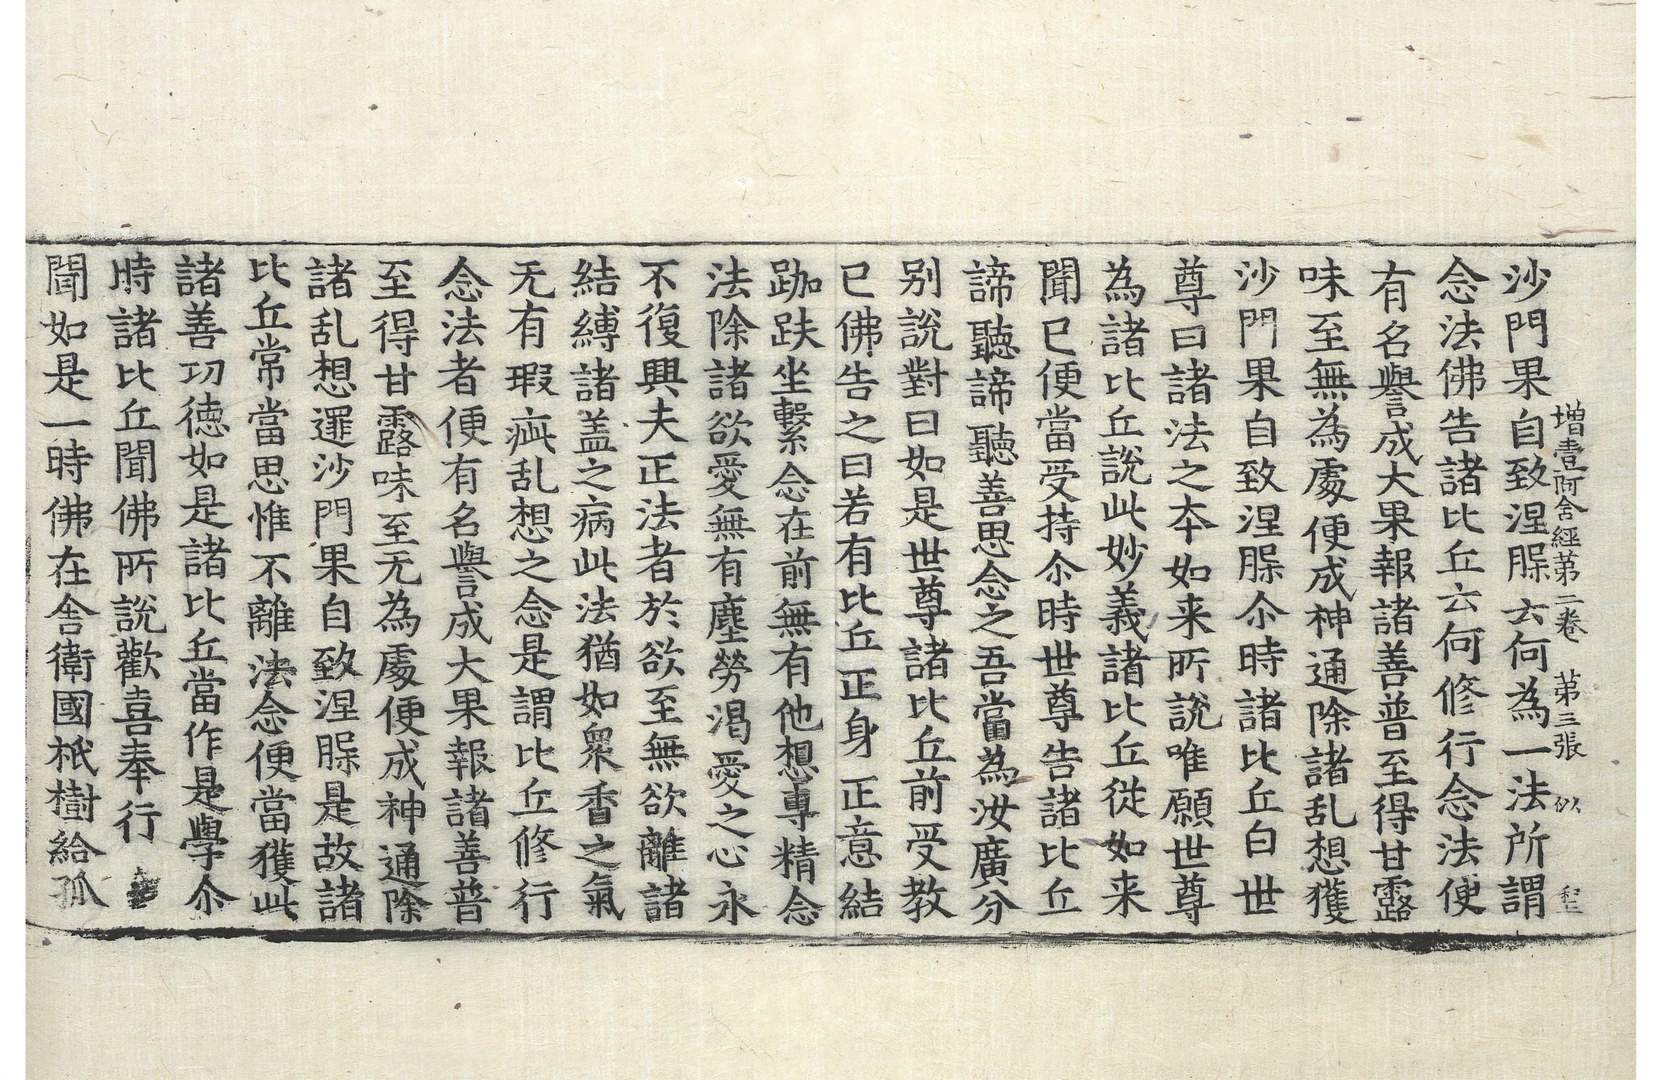 增壹阿含經第二卷　第三張　似　程
沙門果自致涅槃云何為一法所謂
念法佛告諸比丘云何修行念法便
有名譽成大果報諸善普至得甘露
味至無為處便成神通除諸乱想獲
沙門果自致涅槃尒時諸比丘白世
尊曰諸法之夲如来所説唯願世尊
為諸比丘説此妙義諸比丘從如来
聞已便當受持尒時世尊告諸比丘
諦聽諦聽善思念之吾當為汝廣分
别説對曰如是世尊諸比丘前受教
已佛告之曰若有比丘正身正意結
跏趺坐繫念在前無有他想專精念
法除諸欲愛無有塵勞渴愛之心永
不復興夫正法者於欲至無欲離諸
結縛諸盖之病此法猶如衆香之氣
无有瑕疵乱想之念是謂比丘修行
念法者便有名譽成大果報諸善普
至得甘露味至无為處便成神通除
諸乱想逮沙門果自致涅槃是故諸
比丘常當思惟不離法念便當獲此
諸善功徳如是諸比丘當作是學尒
時諸比丘聞佛所説歡喜奉行
聞如是一時佛在舎衛國祇樹給孤